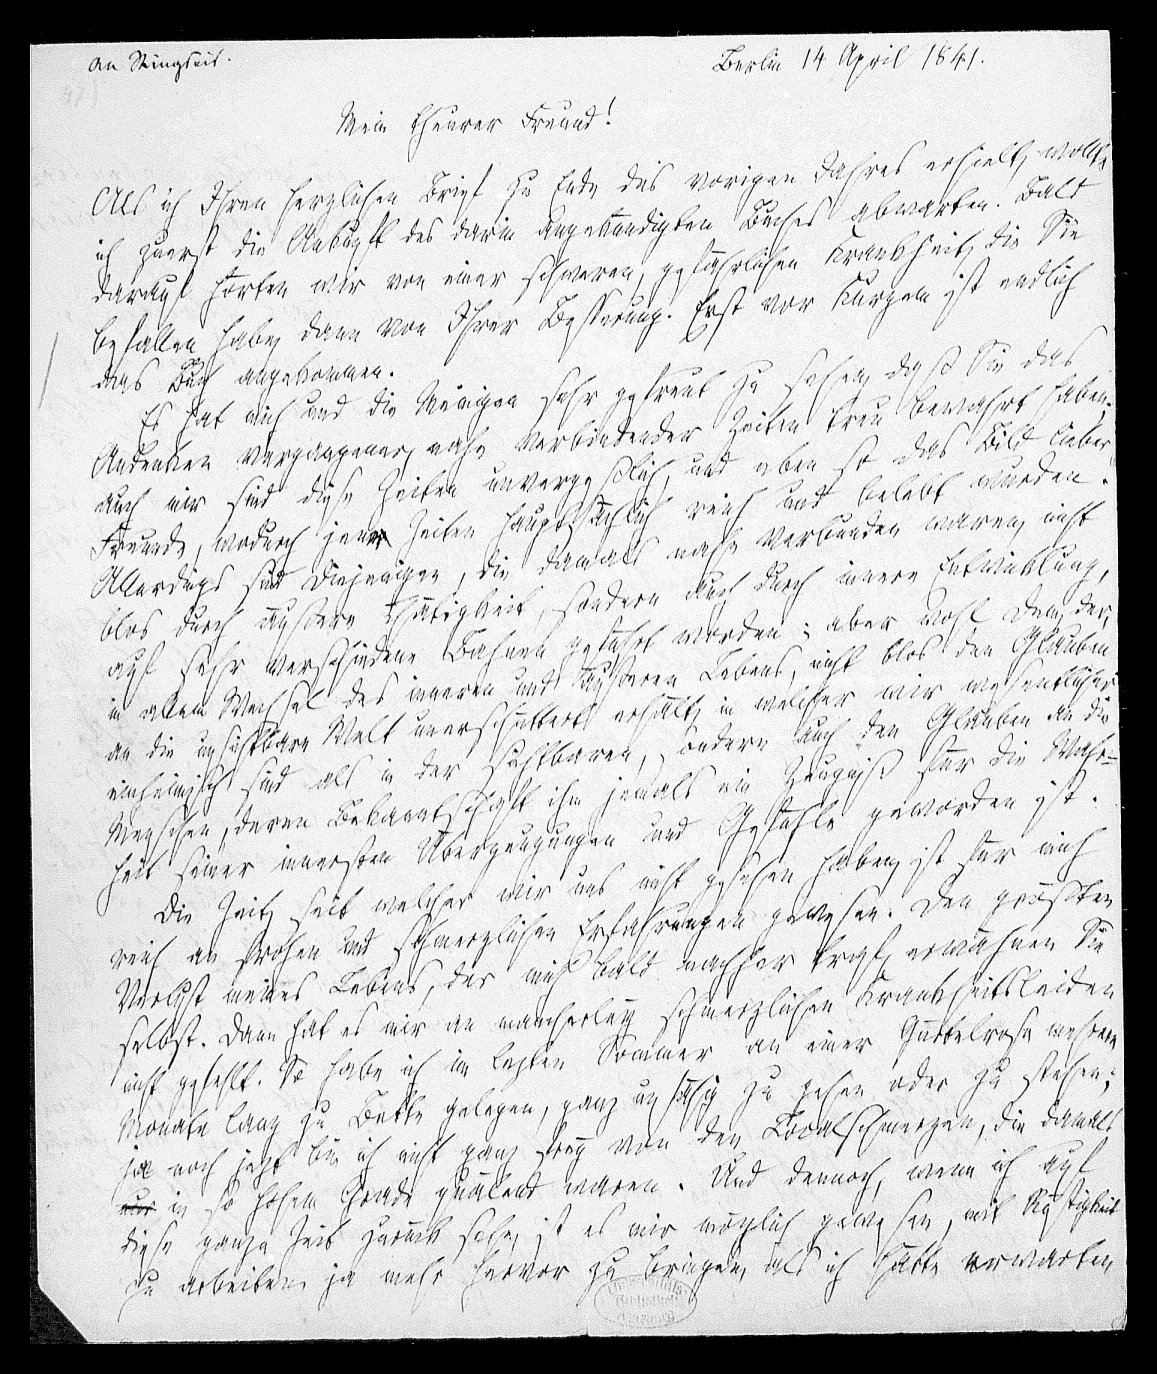 An Ringseis.
Berlin 14 April 1841.
Mein theurer Freund!
Als ich Ihren herzlichen Brief zu Ende des vorigen Jahres erhielt, wollte
ich zuerst die Ankunft des darin angekündigten Buches abwarten. Bald
darauf hörten wir von einer schweren, gefährlichen Krankheit, die Sie
befallen habe, dann von Ihrer Besserung. Erst vor Kurzem ist endlich
das Buch angekommen.
Es hat mich und die Meinigen sehr gefreut zu sehen, daß Sie das
Andenken vergangener, nahe verbindender Zeiten treu bewahrt haben;
auch mir sind diese Zeiten unvergeßlich, und eben so das Bild lieber
Freunde, wodurch jene Zeiten hauptsächlich reich und belebt wurden.
Allerdings sind diejenigen, die damals nahe verbunden waren, nicht
blos durch äußere Thätigkeit, sondern auch durch innere Entwicklung,
auf sehr verschiedene Bahnen geführt worden; aber wohl dem, der,
in allem Wechsel des inneren und äußeren Lebens, nicht blos den Glauben
an die unsichtbare Welt unerschüttert erhält, in welcher wir wesentlicher
einheimisch sind als in der sichtbaren, sondern auch den Glauben an die
Menschen, deren Bekanntschaft ihm jemals ein Zeugniß für die Wahr=
heit seiner innersten Überzeugungen und Gefühle geworden ist.
Die Zeit, seit welcher wir uns nicht gesehen haben, ist für mich
reich an frohen und schmerzlichen Erfahrungen gewesen. Den größten
Verlust meines Lebens, der mich bald nachher traf, erwähnen Sie
selbst. Dann hat es mir an mancherley schmerzlichen Krankheitsleiden
nicht gefehlt. So habe ich im lezten Sommer an einer Gürtelrose mehrere
Monate lang zu Bette gelegen, ganz unfähig zu gehen oder zu stehen;
ja noch jezt bin ich nicht ganz frey von den Localschmerzen, die damals
nur in so hohem Grade quälend waren. Und dennoch, wenn ich auf
diese ganze Zeit zurück sehe, ist es mir möglich gewesen, mit Rüstigkeit
zu arbeiten, ja mehr hervor zu bringen, als ich hätte erwarten